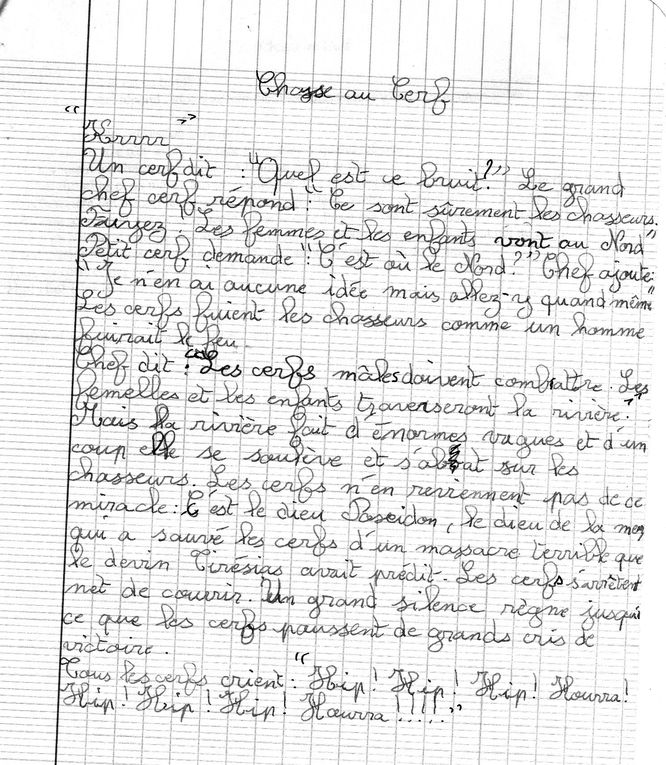 Chasse au Cerf
"Krrrr"
Un cerf dit : "Quel est ce bruit?" Le grand
chef cerf répond : "Ce sont sûrement les chasseurs.
Fuyez! Les femmes et les enfants vont au Nord"
Petit cerf demande : "C'est où le Nord?" Chef ajoute:
"Je n'en ai aucune idée mais allez-y quand même"
Les cerfs fuient les chasseurs comme un homme
fuirait le feu.
Chef dit : "Les cerfs mâles doivent combattre. Les
femelles et les enfants traverseront la rivière."
Mais la rivière fait d'énormes vagues et d'un
coup elle se soulève et s'abat sur les
chasseurs. Les cerfs n'en reviennent pas de ce
miracle: C'est le dieu Poseidon, le dieu de la mer
qui a sauvé les cerfs d'un massacre terrible que
le devin Tirésias avait prédit. Les cerfs s'arrêtent
net de courir. Un grand silence règne jusqu'à
ce que les cerfs poussent de grands cris de
victoire.
Tous les cerfs crient : "Hip! Hip! Hip! Hourra!
Hip! Hip! Hip! Hourra!!!!!"